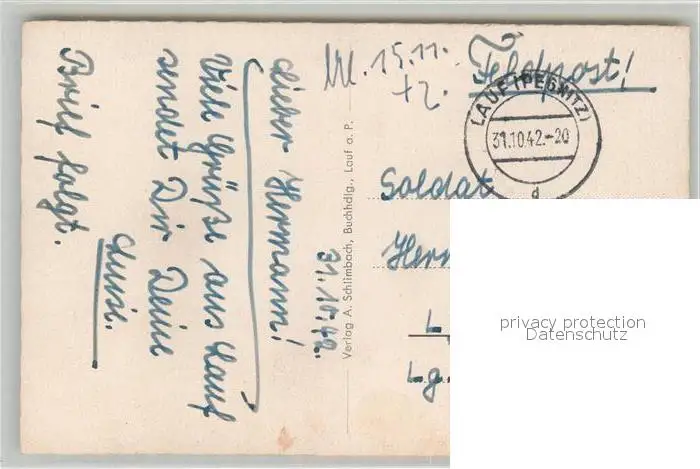 31.10.42.
Lieber Hermann!
Viele Grüße aus Lauf
sendet Dir Deine
Luise.
Brief folgt.
Verlag A. Schlimbach, Buchhdlg., Lauf a. P.
15.11.
42.
Feldpost!
LAUF (PEGNITZ)
31.10.42.-20
d
Soldat
Her
L
L.g.
privacy protection
Datenschutz